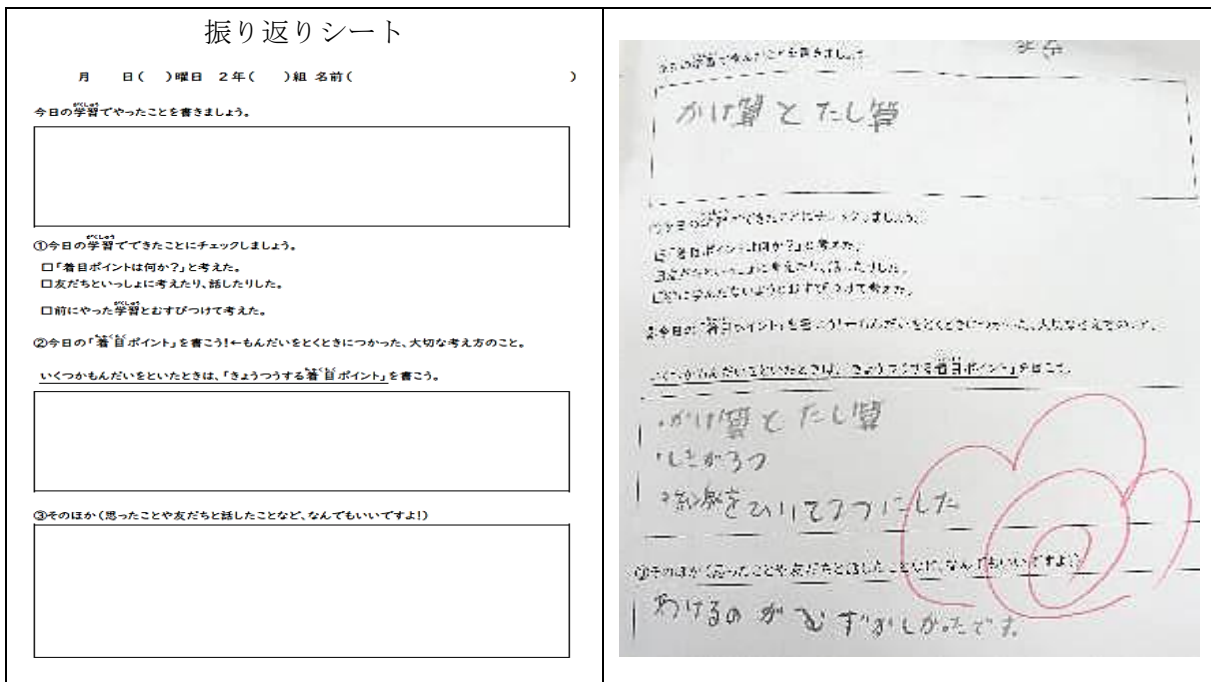 振り返りシート
月 日( )曜日 2年( )組 名前( )
今日の学習でやったことを書きましょう。
①今日の学習でできたことにチェックしましょう。
□「着目ポイントは何か?」と考えた。
□友だちといっしょに考えたり、話したりした。
□前にやった学習とおすびつけて考えた。
②今日の「着目ポイント」を書こう!←もんだいをとくときにつかった、大切な考え方のこと。
いくつかもんだいをといたときは、「きょうつうする着目ポイント」を書こう。
③そのほか(思ったことや友だちと話したことなど、なんでもいいですよ!)
かけ算とたし算
①今日の学習でできたことにチェックしましょう。
「着目ポイントは何か?」と考えた。
友だちといっしょに考えたり、話したりした。
②今日の「着目ポイント」を書こう!←もんだいをとくときにつかった、大切な考え方のこと。
いくつかもんだいをといたときは、「きょうつうする着目ポイント」を書こう。
・かけ算とたし算
・しきが3つ
・線をひいて2つにした
③そのほか(思ったことや友だちと話したことなど、なんでもいいですよ!)
わけるのがむずかしかったです